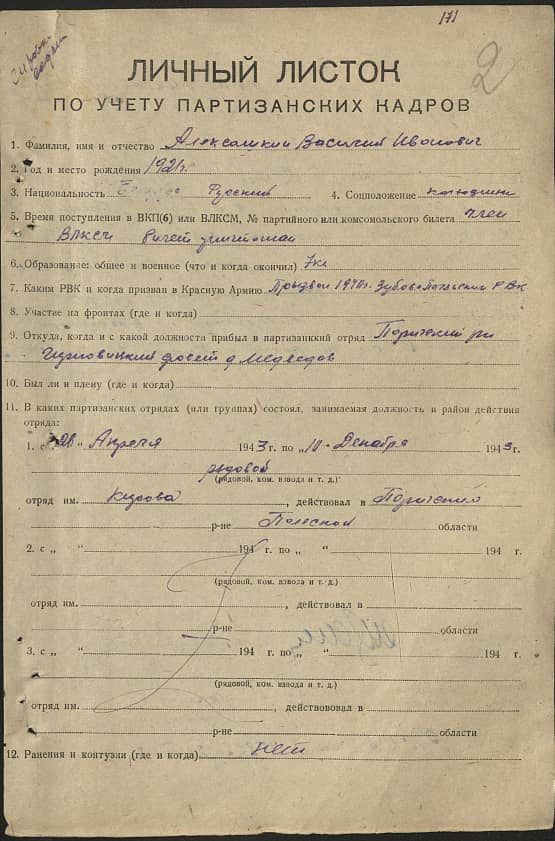 171
2
ЛИЧНЫЙ ЛИСТОК
ПО УЧЕТУ ПАРТИЗАНСКИХ КАДРОВ
1. Фамилия, имя и отчество Алексашкин Василий Иванович
2. Год и место рождения 1921г.
3. Национальность Русский 4. Соцположение
5. Время поступления в ВКП(б) или ВЛКСМ, № партийного или комсомольского билета член
ВЛКСМ билет
6. Образование: общее и военное (что и когда окончил) 7кл
7. Каким РВК и когда призван в Красную Армию Призван 1940г. Зубово Полянским РВК
8. Участие на фронтах (где и когда)
9. Откуда, когда и с какой должности прибыл в партизанкий отряд Паричский
д Медведов
10. Был ли в плену (где и когда)
11. В каких партизанских отрядах (или группах) состоял, занимаемая должность и район действия
отряда:
1. с „28 “ Апреля 1943 г. по „10 “ Декабря 1943 г.
рядовой
(рядовой, ком. взвода и т. д.)
отряд им. , действовал в Паричский
р-не Полесской области
2. с „ “ 194 г. по „ “ 194 г.
(рядовой, ком. взвода и т. д.)
отряд им. , действовал в
р-не области
3. с „ “ 194 г. по „ “ 194 г.
(рядовой, ком. взвода и т. д.)
отряд им. , действововал в
р-не области
12. Ранения и контузии (где и когда) нет